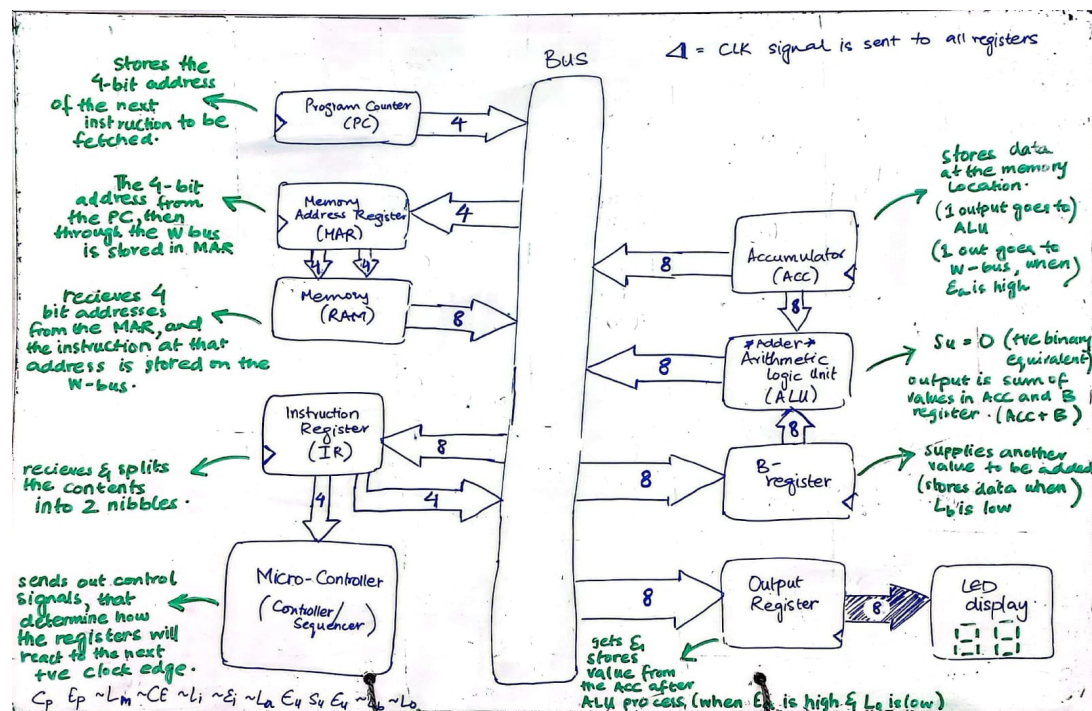 ◁ = CLK signal is sent to all registers
Bus
stores the
4-bit address
of the next
instruction to be
fetched.
Program Counter
(PC)
4
The 4-bit
address from
the PC, then
through the W bus
is stored in MAR
Memory
Address Register
(MAR)
4
4 4
recieves 4
bit addresses
from the MAR, and
the instruction at that
address is stored on the
W-bus.
Memory
(RAM)
8
Instruction
Register
(IR)
8
4
4
recieves & splits
the contents
into 2 nibbles.
Micro-Controller
(Controller/
Sequencer)
sends out control
signals, that
determine how
the registers will
react to the next
+ve clock edge.
Cp Ep ~Lm ~CE ~Li ~Ei ~La Eu Su Eu ~Lb ~Lo
Accumulator
(ACC)
8
8
stores data
at the memory
location.
(1 output goes to)
ALU
(1 out goes to
W-bus, when)
Ea is high
*Adder*
Arithmetic
logic Unit
(ALU)
8
8
Su = 0 (+ve binary
equivalent)
output is sum of
values in ACC and B
register. (ACC+B)
B-
register
8
supplies another
value to be added
(stores data when)
Lb is low
Output
Register
8
8
LED
display
gets &
stores
value from
the ACC after
ALU process, (when is high & Lo is low)